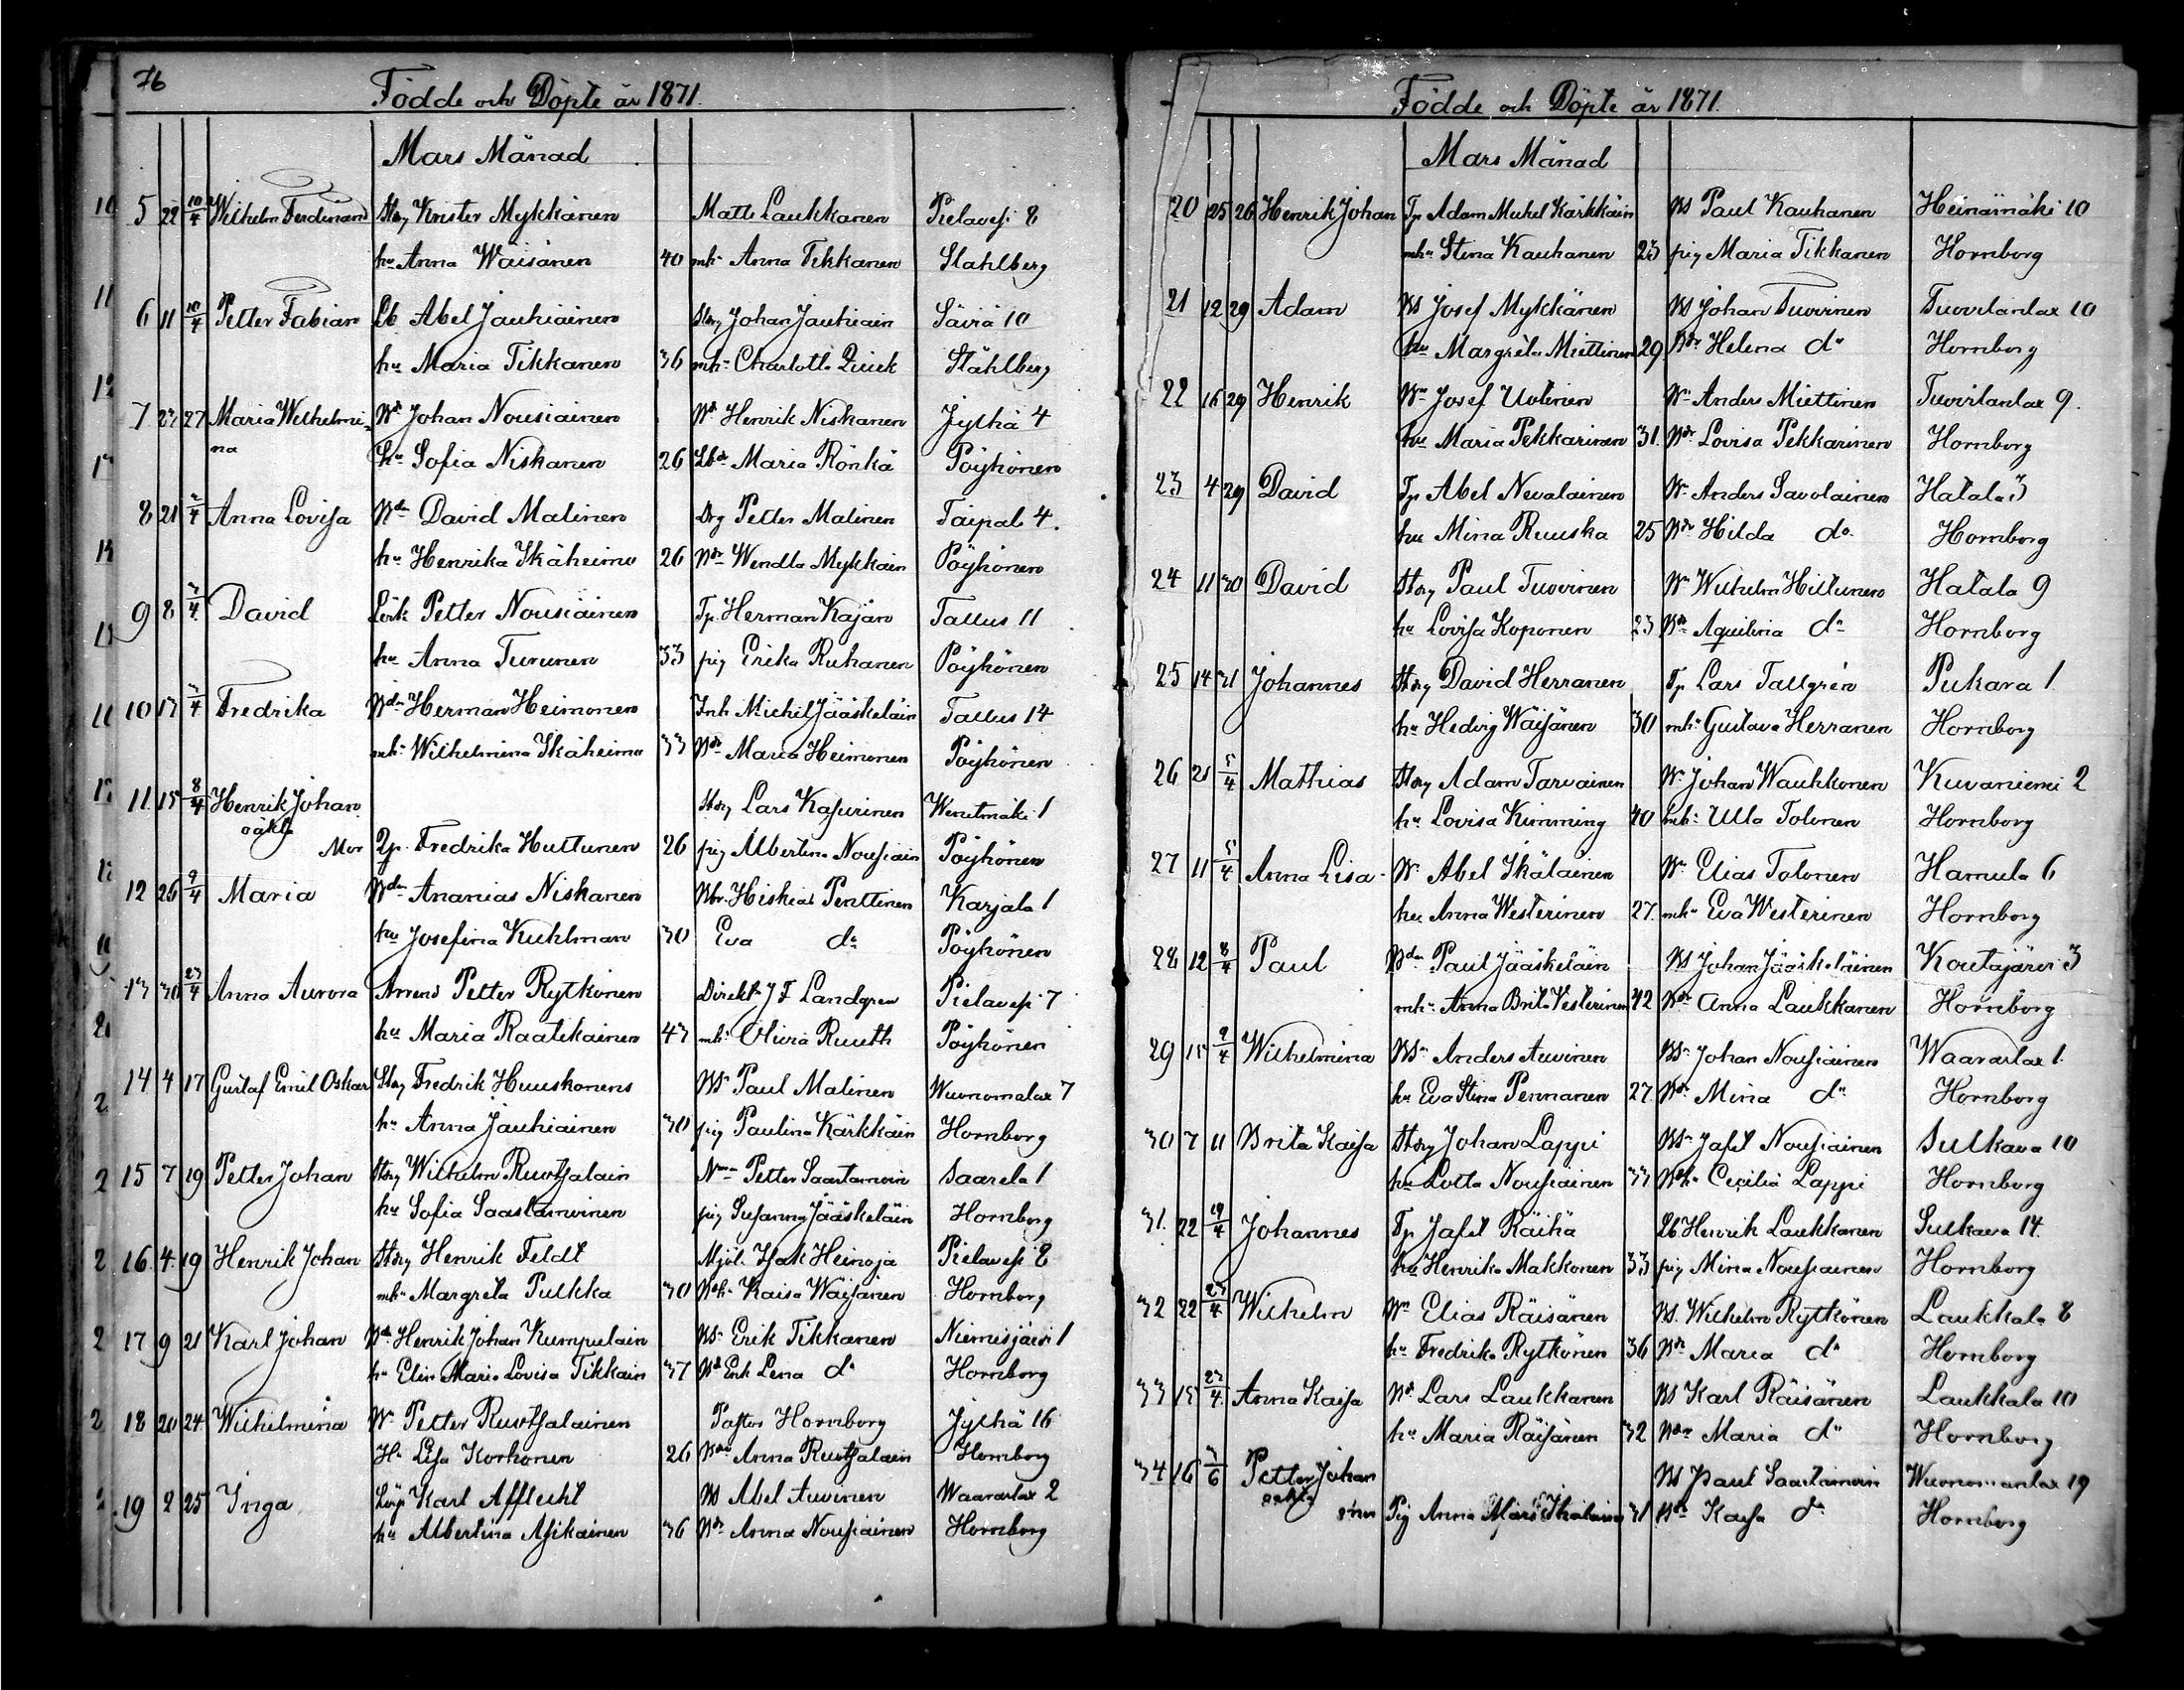 76
Födde och Döpte år 1871.
Mars Månad
5 22 10/4 Wilhelm Ferdinand Storp Krister Mykkänen Matts Laukkanen Pielavesi 8
hu Anna Wäisänen 40 mhu Anna Tikkanen Stahlberg
6 11 10/4 Petter Fabian Lb Abel Jauhiainen Storp Johan Jauhiain Säviä 10
hu Maria Tikkanen 36 mhu Charlotta Quick Ståhlberg
7 23 27 Maria Wilhelmi- Wd Johan Nousiainen Wd Henrik Niskanen Jylhä 4
na hu Sofia Niskanen 26 Lbdr Maria Rönkä Pöyhönen
8 21 2/4 Anna Lovisa Wdn David Malinen Drg Petter Malinen Taipale 4.
hu Henrika Ikäheimo 26 Wdr Wendla Mykkäin Pöyhönen
9 8 2/4 David Lösk Petter Nousiäinen Tp Herman Kajan Tallus 11
hu Anna Turunen 33 pig Erika Ruhanen Pöyhönen
10 17 2/4 Fredrika Wdn Herman Heimonen Inh Michel Jääskeläin Tallus 14
mhu Wilhelmina Ikäheimo 33 Wdr Maria Heimonen Pöyhönen
11 15 8/4 Henrik Johan Storp Lars Kasurinen Wenetmäki 1
oäkta Mor Qp. Fredrika Huttunen 26 pig Albertina Nousiain Pöyhönen
12 26 9/4 Maria Wdn Ananias Niskanen Wbr. Hiskias Penttinen Karjala 1
hu Josefina Kuhlman 30 Eva do Pöyhönen
13 30 23/4 Anna Aurora Arrend Petter Rytkönen Direkt J F Landgren Pielavesi 7
hu Maria Raatikainen 43 mhu Olivia Ruuth Pöyhönen
14 4 17 Gustaf Emil Oskar Storp Fredrik Huuskonens Ws Paul Malinen Wuonamalax 7
hu Anna Jauhiainen 30 pig Paulina Kärkkäin Hornborg
15 7 19 Petter Johan Storp Wilhelm Ruotsalain Petter Saastamoin Saarela 1
hu Sofia Saastamoinen pig Susanna Jääskeläin Hornborg
16. 4. 19 Henrik Johan Storp Henrik Feldt Mjöl. Isak Heinoja Pielavesi 8
mhu Margreta Pulkka 30 Wdhu Kaisa Wäisänen Hornborg
17 9 21 Karl Johan Wd Henrik Johan Kumpulain Ws Erik Tikkanen Niemisjärvi 1
hu Elin Maria Lovisa Tikkain 37 Wd Enk Lena do Hornborg
18 20 24. Wilhelmina Wn Petter Ruotsalainen Pastor Hornborg Jylhä 16
Hu Lisa Korhonen 26 Wdn Anna Ruotsalain Hornborg
19 2 25 Inga Karl Afflecht Ws Abel Auvinen Waaraslax 2
hu Albertina Asikainen 36 Wdr Anna Nousiainen Hornborg
Födde och Döpte år 1871.
Mars Månad
20 25 26 Henrik Johan Tp Adam Mickel Kärkkäin Ws Paul Kauhanen Heinämäki 10
mhu Stina Kauhanen 23 pig Maria Tikkanen Hornborg
21 12 29 Adam Ws Josef Mykkänen Ws Johan Tuovinen Tuovilanlax 10
hu Margreta Miettinen 29 Wdr Helena do Hornborg
22 16 29 Henrik Wn Josef Uotinen Wn Anders Miettinen Tuovilanlax 9.
hu Maria Pekkarinen 31. Wdr Lovisa Pekkarinen Hornborg
23 4 29 David Tp Abel Nevalainen Wn Anders Savolainen Hatala 3
hu Mina Ruuska 25 Wdr Hilda do Hornborg
24 11 30 David Storp Paul Tuovinen Wn Wilhelm Hiltunen Hatala 9
hu Lovisa Koponen 23 Wdr Aquilina do Hornborg
25 14 31 Johannes Storp David Herranen Tp Lars Tallgrén Pukara 1
hu Hedvig Wäisänen 30 mhu Gustava Herranen Hornborg
26 21 5/4 Mathias Storp Adam Tarvainen Wn Johan Wauhkonen Kuvaniemi 2
hu Lovisa Kimming 40 mhu Ulla Tolonen Hornborg
27 11 5/4 Anna Lisa Wn Abel Ikäläinen Wn Elias Tolonen Hamula 6
hu Anna Westerinen 27. mhu Eva Westerinen Hornborg
28 12 8/4 Paul Wdn Paul Jääskeläin Ws Johan Jääskeläinen Koutajärvi 3
mhu Anna Brita Vesterinen 42 Wdr Anna Laukkanen Hornborg
29 15 9/4 Wilhelmina Wsn Anders Auvinen Wsn Johan Nousiainen Waaraslax 1.
hu Eva Stina Pennanen 27. Wdr Mina do Hornborg
30 7 11 Brita Kaisa Storp Johan Lappi Wsn Jafet Nousiainen Sulkava 10
hu Lotta Nousiainen 33 Wdhu Cecilia Lappi Hornborg
31. 22 19/4 Johannes Tp Jafet Räihä Lb Henrik Laukkanen Sulkava 14.
hu Henrika Makkonen 33 pig Mina Nousiainen Hornborg
32 22 23/4 Wilhelm Wn Elias Räisänen Ws. Wilhelm Rytkönen Laukkala 8
hu Fredrika Rytkönen 36 Wdr Maria do Hornborg
33 15 23/4 Anna Kaisa Wd Lars Laukkanen Ws Karl Räisänen Laukkala 10
hu Maria Räisänen 32 Wdn Maria do Hornborg
34 16 3/6 Petter Johan Ws Paul Saastamoin Wuonamanlax 19
oäkta Pig Anna Maria Ikäläinen 31 Wdn Kaisa do Hornborg